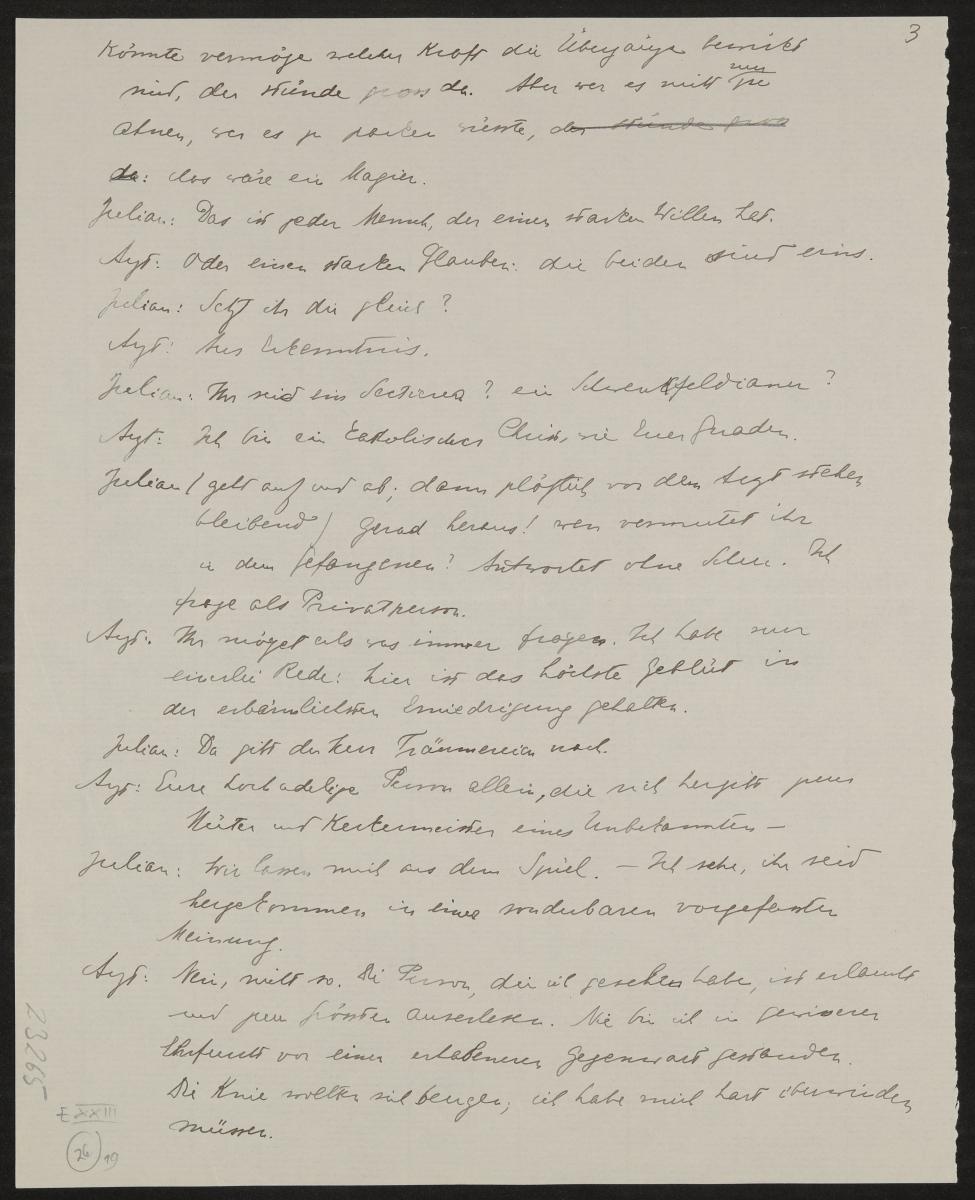 3
könnte vermöge welcher Kraft die Übergänge bewirkt
sind, der stünde gross da. Aber wer es nicht nur zu
ahnen, wer es zu packen wüsste, der stünde gross
da: das wäre ein Magier.
Julian: Das ist jeder Mensch, der einen starken Willen hat.
Arzt: Oder einen starken Glauben: die beiden sind eins.
Julian: Setzt ihr die gleich?
Arzt: Aus Erkenntnis.
Julian: Ihr seid ein Sectierer? ein Schwenkfeldianer?
Arzt: Ich bin ein katolischer Christ, wie Euer Gnaden.
Julian (geht auf und ab; dann plötzlich vor dem Arzt stehen
bleibend) Gerad heraus! wen vermutet ihr
in dem Gefangenen? Antwortet ohne Scheu. Ich
frage als Privatperson.
Arzt: Ihr möget als was immer fragen. Ich habe nur
einerlei Rede: hier ist das höchste Geblüt in
der erbärmlichsten Erniedrigung gehalten.
Julian: Da gibt der Herr Träumereien nach.
Arzt: Eure hochadelige Person allein, die sich hergibt zum
Hüter und Kerkermeister eines Unbekannten —
Julian: Wir lassen mich aus dem Spiel. — Ich sehe, ihr seid
hergekommen in einer sonderbaren vorgefassten
Meinung.
Arzt: Nein, nicht so. Die Person, die ich gesehen habe, ist erlaucht
und zum grössten auserlesen. Nie bin ich in gewisserer
Ehrfurcht vor einer erhabeneren Gegenwart gestanden.
Die Knie wollten sich beugen; ich habe mich hart überwinden
müssen.
23265
E XXIII
26
19